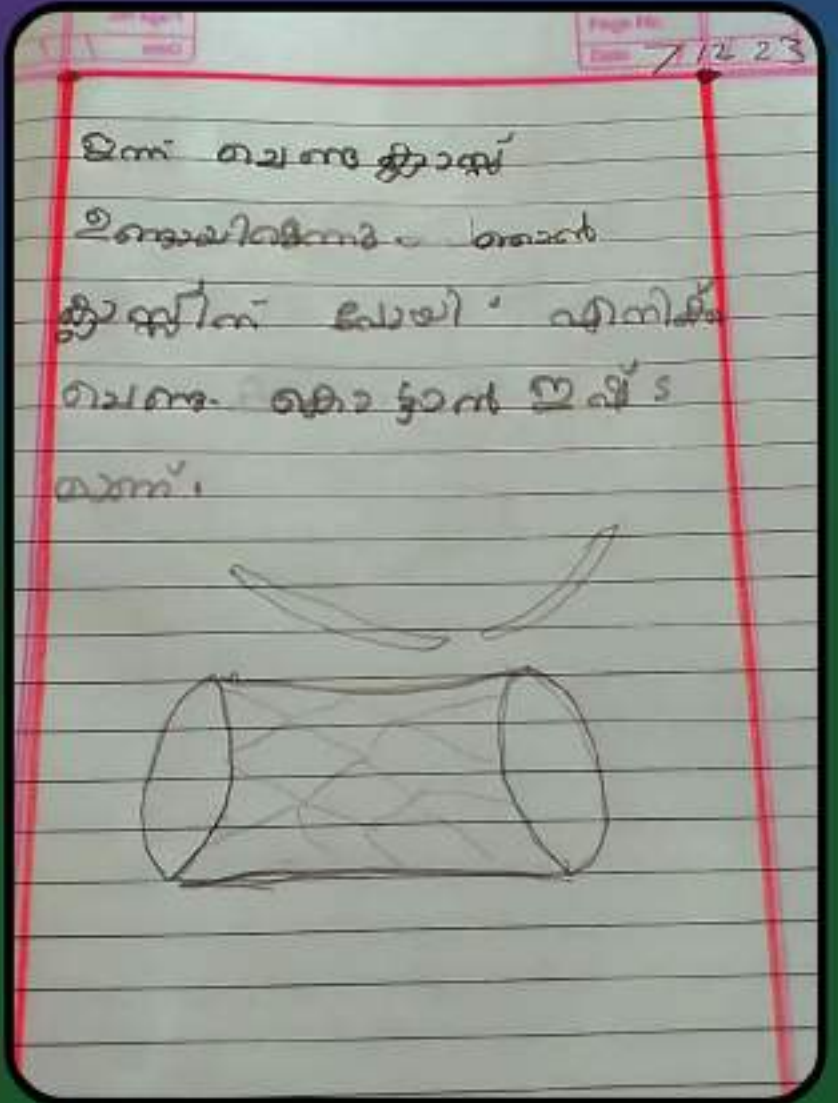 Page No.
Date 7 12 23
ഇന്ന് ചെണ്ട ക്ലാസ്സ്
ഉണ്ടായിരുന്നു. ഞാൻ
ക്ലാസ്സിന് പോയി. എനിക്ക്
ചെണ്ട കൊട്ടാൻ ഇഷ്ട
മാണ്.